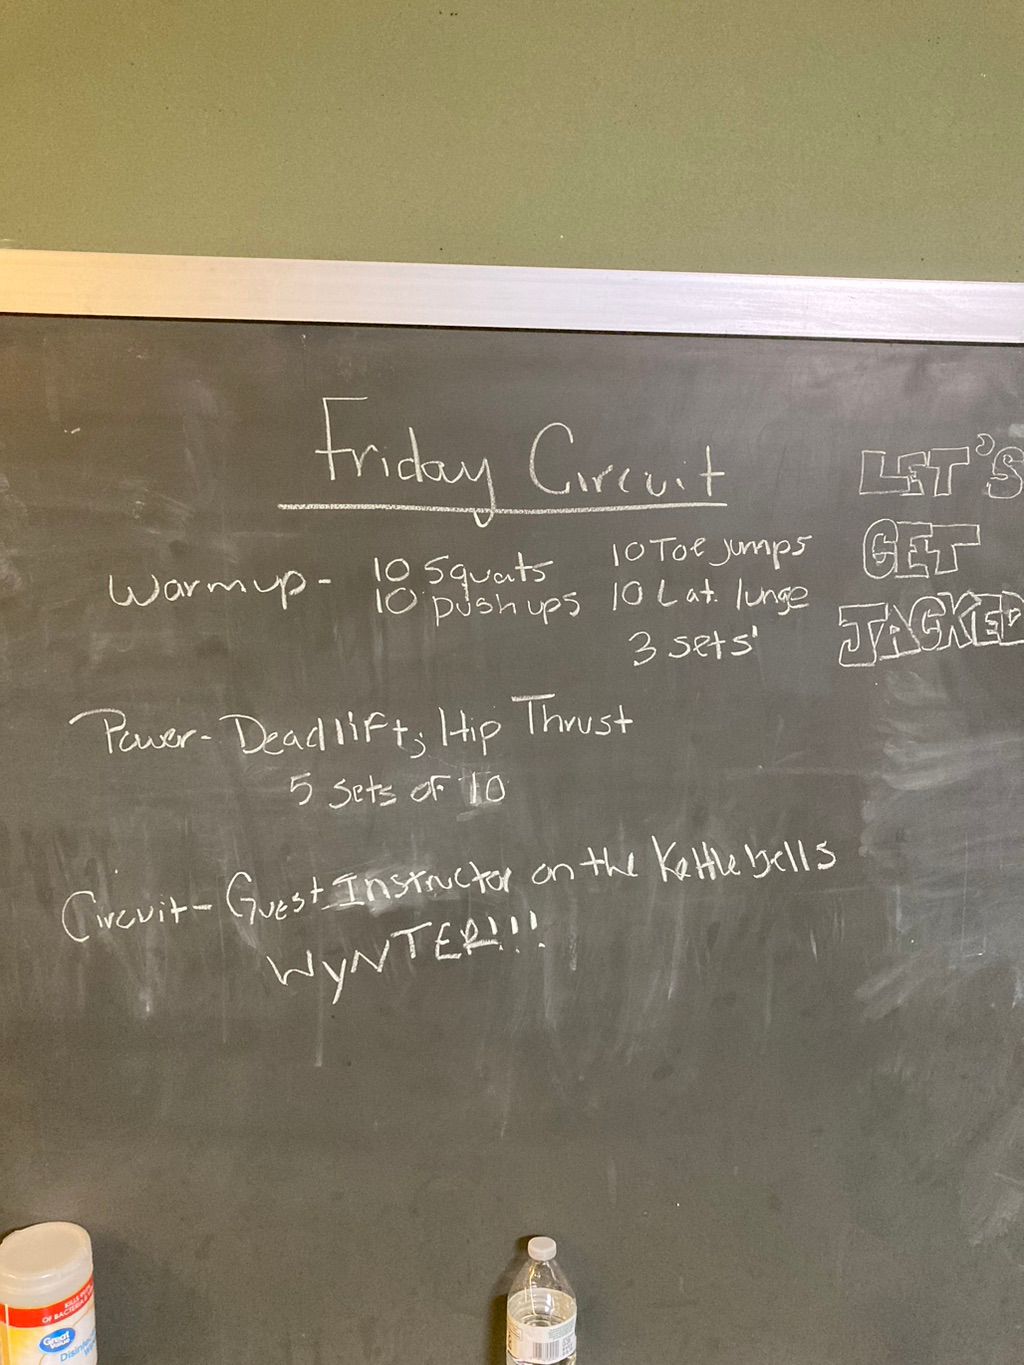 Friday Circuit
Warmup - 10 Squats 10 Toe jumps
10 pushups 10 Lat. lunge
3 sets
Power - Deadlift, Hip Thrust
5 sets of 10
Circuit - Guest Instructor on the Kettlebells
WyNTER!!!
LET'S
GET
JACKED
KILLS
OF BACTERIA
Great
Value